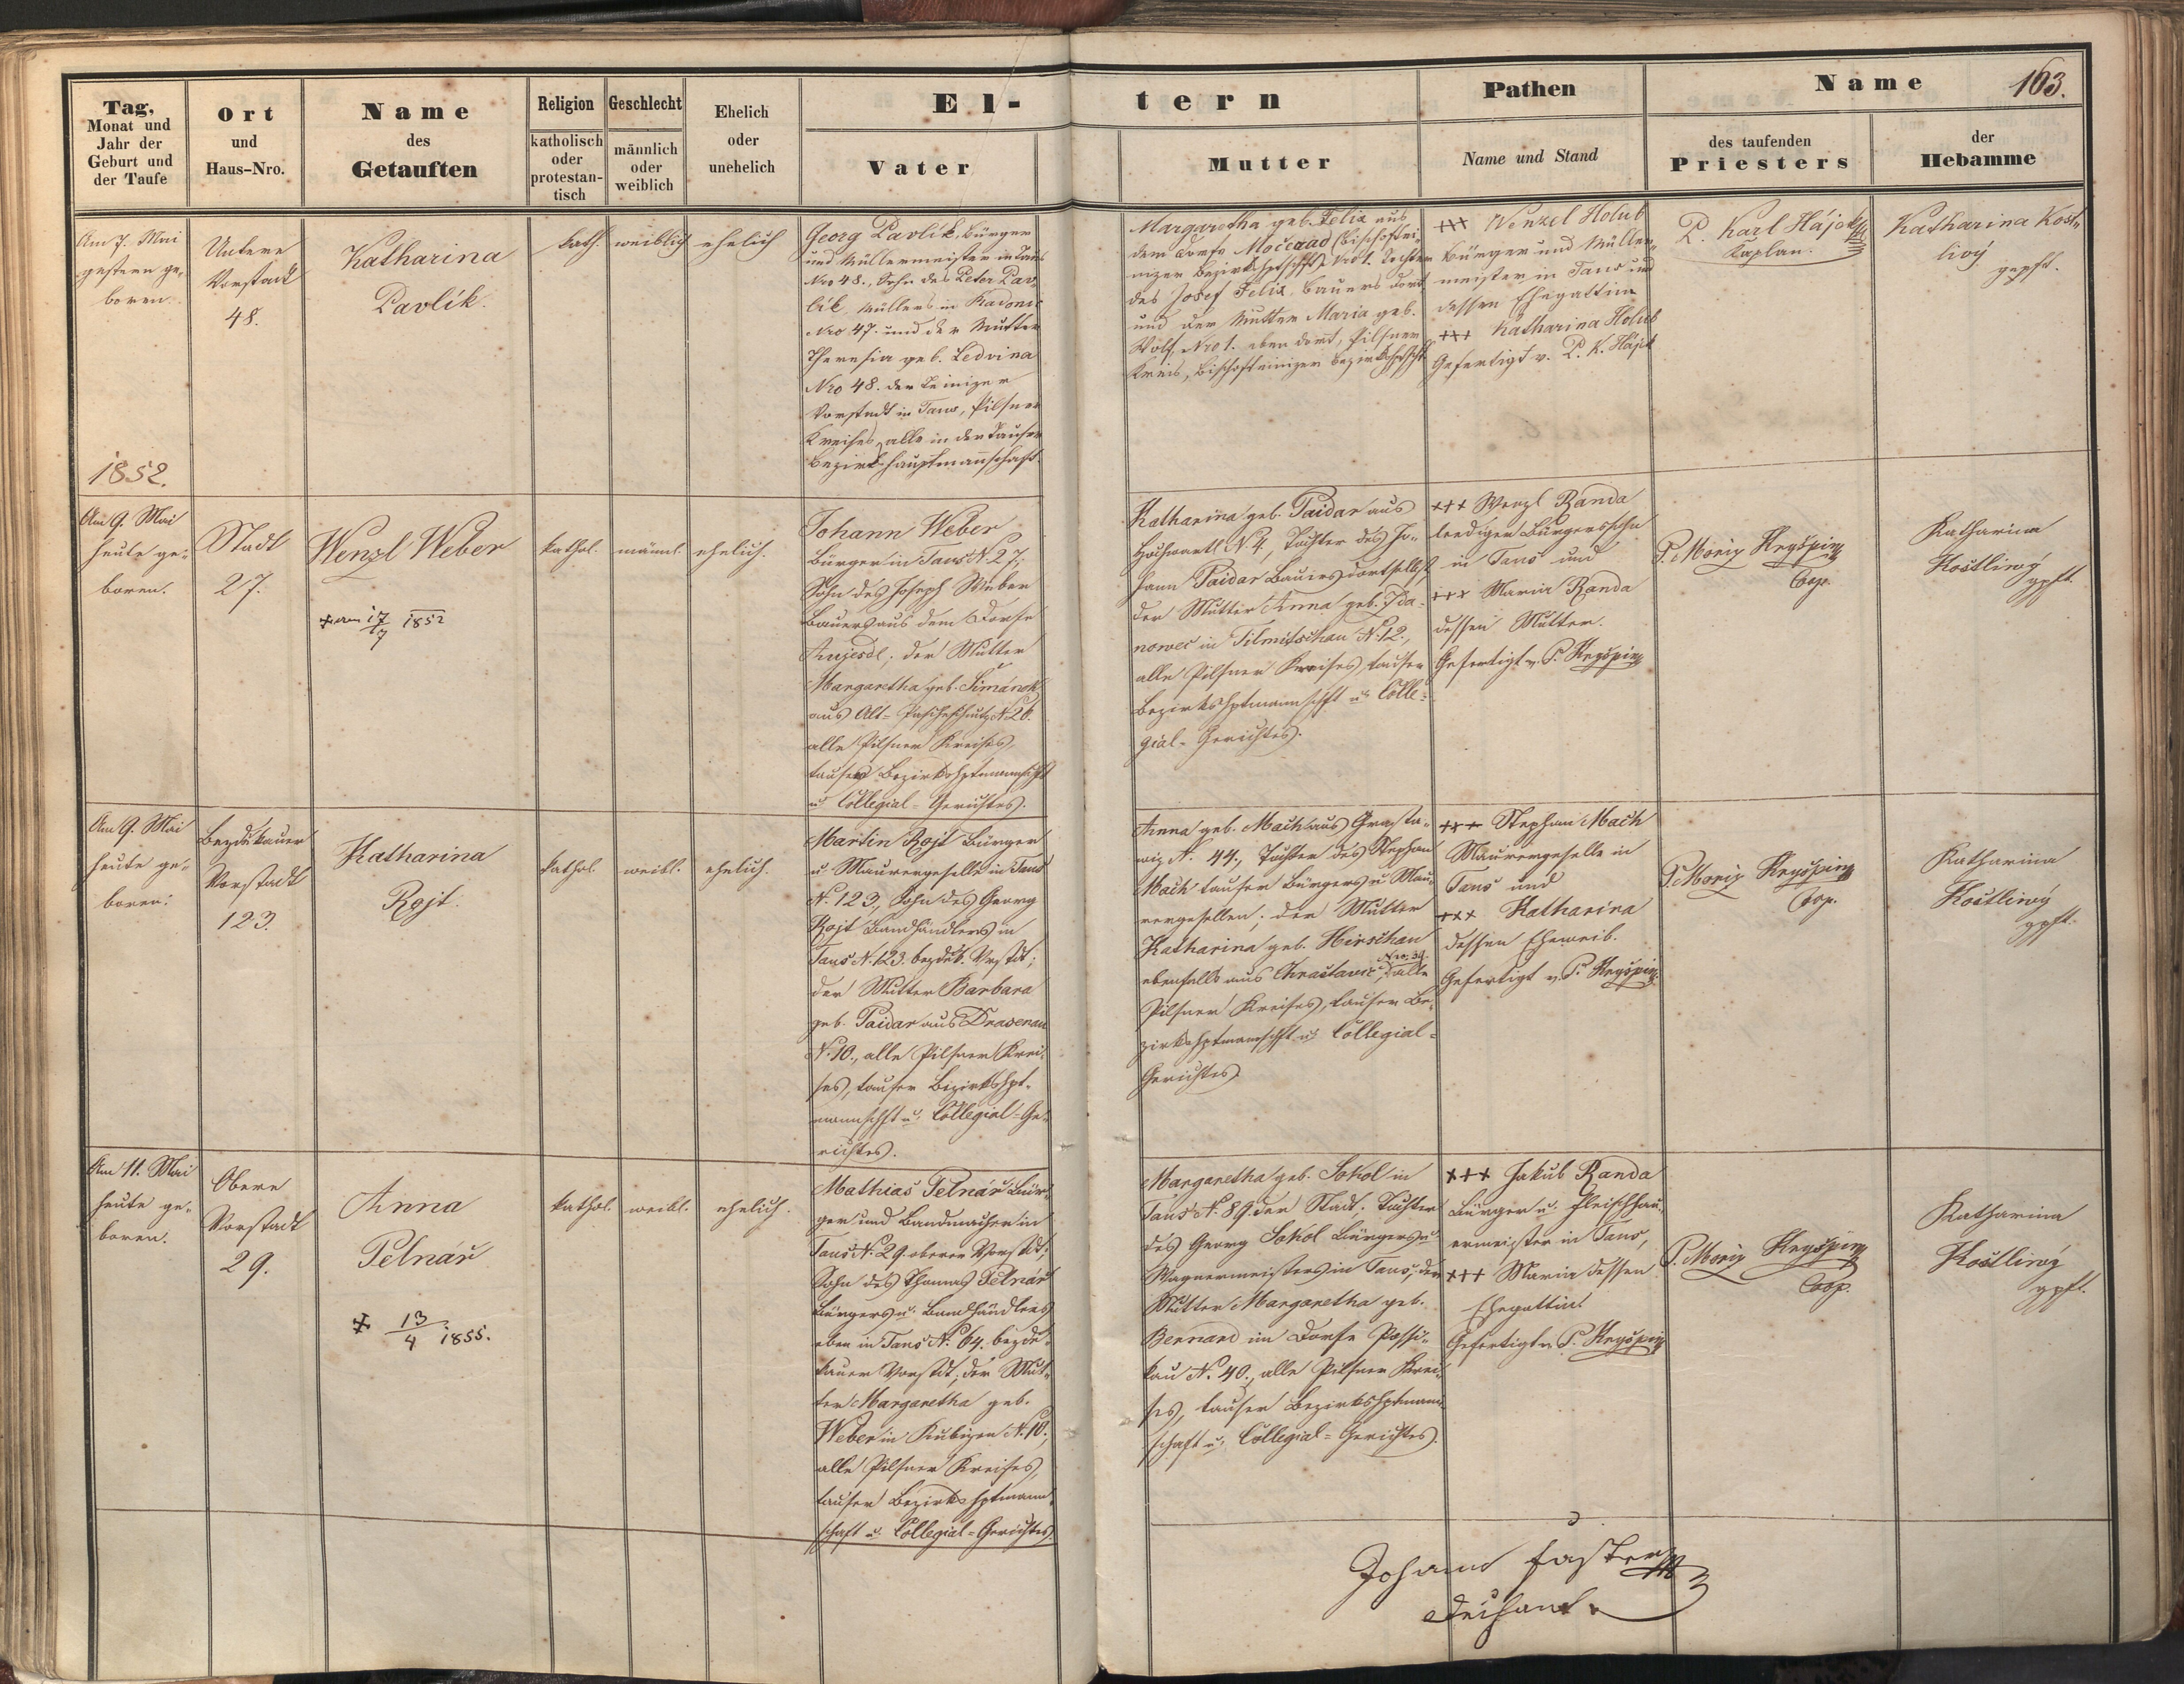 163.
Tag, Monat und Jahr der Geburt und der Taufe
Ort und Haus-Nro.
Name des Getauften
Religion katholisch oder protestantisch
Geschlecht männlich oder weiblich
Ehelich oder unehelich
El-
tern
Vater
Mutter
Pathen
Name und Stand
Name
des taufenden Priesters
der Hebamme
Am 7. Mai
gestern ge-
boren.
1852.
Untere
Vorstadt
48.
Katharina
Pavlík.
kath.
weiblich
ehelich
Georg Pavlík, Bürger
und Müllermeister in Taus
Nro 48., Sohn des Peter Pav
lík, Müllers in
Nro 47. und der Mutter
Theresia geb. Ledvina
Nro 48. der Teinizer
Vorstadt in Taus, Pilsner
Kreises, alle in der Tauser
Bezirkshauptmannschaft.
Margaretha geb. Felix aus
dem Dorfe Močerad (Bischoftei-
nizer Bezirkshptschft) Nro 1. Tochter
des Josef Felix, Bauers dort
und der Mutter Maria geb.
Wolf, Nro 1. eben dort, Pilsner
Kreis, Bischofteinizer Bezirkshptschft
+++ Wenzel Holub
Bürger und Müller-
meister in Taus und
dessen Ehegattin
+++ Katharina Holub
Gefertigt v. P. K. Hájek
P. Karl Hájek
Kaplan.
Katharina Kost-
livý
gepft.
Am 9. Mai
heute ge-
boren.
Stadt
27.
Wenzl Weber
+ am 17/7 1852
kathol.
männl.
ehelich.
Johann Weber
Bürger in Taus N. 27,
Sohn des Joseph Weber
Bauers aus dem Dorfe
Aujezdl; der Mutter
Margaretha geb. Šimánek
aus Alt- N 26.
alle Pilsner Kreises,
tauser Bezirkshptmannschft
u. Collegial-Gerichtes.
Katharina geb. Paidar aus
Hochwartl N. 4, Tochter des Jo-
hann Paidar Bauers dortselbst,
der Mutter Anna geb. Jda-
nowec in Tilmitschau N. 12.,
alle Pilsner Kreises, tauser
Bezirkshptmannschft u. Colle-
gial-Gerichtes.
+++ Wenzl Randa
lediger Bürgerssohn
in Taus und
+++ Maria Randa
dessen Mutter.
Gefertigt v. P. Kryšpin
P. Moriz Kryšpin
Coop.
Katharina
Kostliwý
gpft.
Am 9. Mai
heute ge-
boren:
Bezdekauer
Vorstadt
123.
Katharina
Rojt.
kathol.
weibl.
ehelich.
Martin Rojt Bürger
u. Maurergeselle in Taus
N. 123., Sohn des Georg
Rojt Bandhändlers in
Taus N. 123. bezdek. Vrstdt;
der Mutter Barbara
geb. Paidar aus Drasenau
N. 10., alle Pilsner Krei-
ses, tauser Bezirkshpt-
mannschft u. Collegial-Ge-
richtes.
Anna geb. Mach aus Chrasta-
wiz N. 44., Tochter des Stephan
Mach tauser Bürgers u. Mau-
rergesellen; der Mutter
Katharina geb. Hirschau
ebenfalls aus Chrastawic Nro. 39., alle
Pilsner Kreises, tauser Be-
zirkshptmannschft u. Collegial-
Gerichtes.
+++ Stephan Mach
Maurergeselle in
Taus und
+++ Katharina
dessen Eheweib.
Gefertigt v. P. Kryšpin
P. Moriz Kryšpin
Coop.
Katharina
Kostliwý
gpft.
Am 11. Mai
heute ge-
boren.
Obere
Vorstadt
29.
Anna
Pelnář
+ 13/4 1855.
kathol.
weibl.
ehelich.
Mathias Pelnář Bür-
ger und Bandmacher in
Taus N. 29. oberer Vorstdt,
Sohn des Thomas Pelnář
Bürgers u. Bandhändlers
eben in Taus N. 64. bezde-
kauer Vorstdt; der Mut-
ter Margaretha geb.
Weber in Kubizen N. 10.,
alle Pilsner Kreises,
tauser Bezirkshptmann-
schaft u. Collegial-Gerichtes.
Margaretha geb. Sokol in
Taus N. 89. der Stadt; Tochter
des Georg Sokol Bürgers u.
Wagnermeisters in Taus; der
Mutter Margaretha geb.
Bernard im Dorfe Possi-
kau N. 40., alle Pilsner Krei-
ses, tauser Bezirkshptmann-
schaft u. Collegial-Gerichtes.
+++ Jakub Randa
Bürger u. Fleischhau-
ermeister in Taus,
+++ Maria dessen
Ehegattin
Gefertigt v. P. Kryšpin
P. Moriz Kryšpin
Coop.
Katharina
Kostliwý
gpft.
Johann Faster
Dechant.